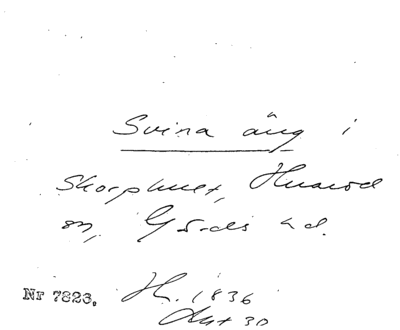 Svina äng i
Skorphult, Huaröd
sn, Gärds hd.
Nr 7823. H. 1836
Akt 30